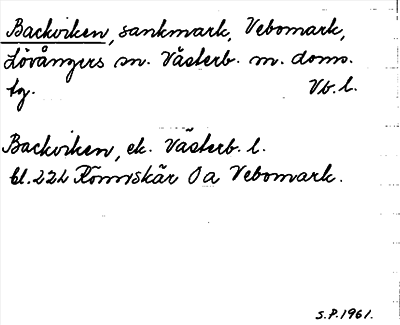 Backviken, sankmark, Vebomark,
Lövångers sn. Västerb. m. doms.
tg. Vb. l.
Backviken, ek. Västerb. l.
bl. 222 Römskär Öa Vebomark.
S.P. 1961.